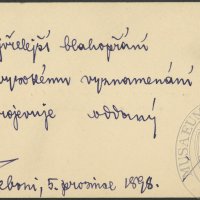 jvřelejší blahopřání
vysokému vyznamenání
rojevuje oddaný
eboni, 5. prosince 1898.
MUSAEUM